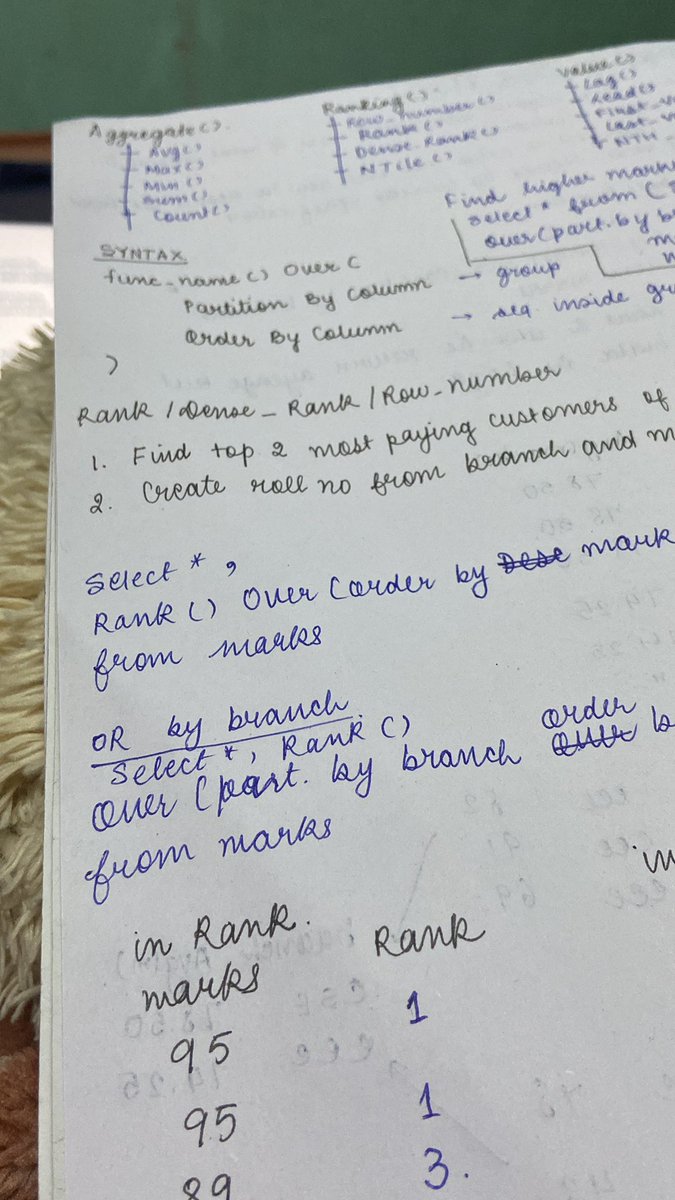 Aggregate().
Avg()
Max()
Min()
Sum()
Count()
Ranking()
Row_number()
Rank()
Dense_Rank()
NTile()
Value()
Lag()
Lead()
First_v
Last_v
NTH_
Find higher mark
Select * from (
over(part. by b
SYNTAX
func_name() Over (
Partition By Column → group
Order By Column → seq inside gr
)
Rank / Dense_Rank / Row_number
1. Find top 2 most paying customers of
2. Create roll no from branch and m
Select *,
Rank() Over (order by mark
from marks
OR by branch.
Select *, Rank()
Over (part. by branch order b
from marks
in Rank.
marks Rank
95 1
95 1
89 3.